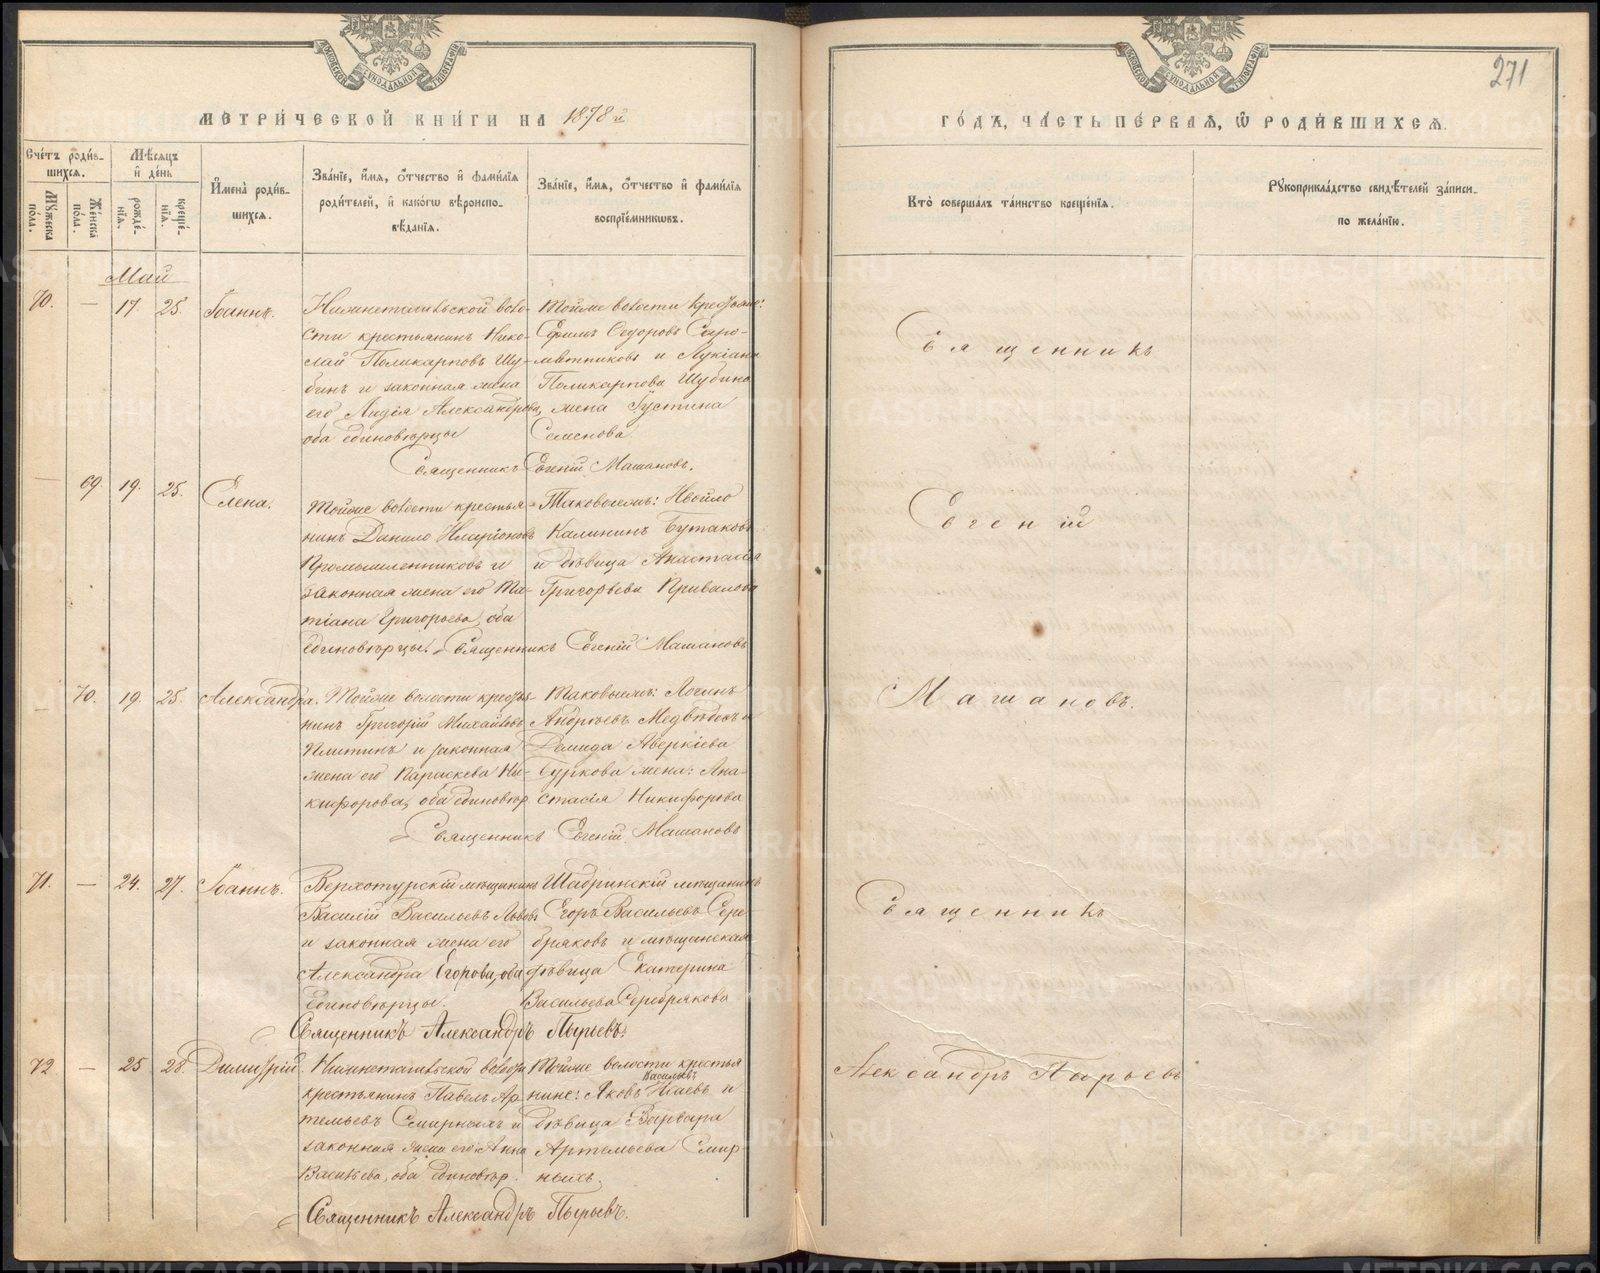 МОСКОВСКОЙ СѴНОДАЛЬНОЙ ТИПОГРАФІИ
МЕТРИ́ЧЕСКОЙ КНИ́ГИ НА 1878 й
Сче́тъ роди́в-
шихся.
Мꙋжеска по́ла.
Же́нска по́ла.
Мѣ́сяцъ
и҆ де́нь
рожде́-
нія.
креще́-
нія.
И҆мена̀ роди́в-
шихся.
Зва́ніе, и҆́мя, ѻ҆́тчество и҆ фами́лїя
роди́телей, и҆ како́гѡ вѣроиспо-
вѣ́данія.
Зва́ніе, и҆́мя, ѻ҆́тчество и҆ фами́лїя
воспрїе́мникѡвъ.
Май
70. — 17 25. Іоаннъ.
Нижнетагильской воло-
сти крестьянинъ Нико-
лай Поликарповъ Шу-
бинъ и законная жена
его Лидія Александрова,
оба единовѣрцы
Тойже волости крестьяне:
Ефимъ Федоровъ Скоро-
и Лукіана
Поликарпова Шубина
жена Іустина
Семенова.
Священникъ Евгеній Машановъ.
— 69. 19. 25. Елена.
Тойже волости крестья-
нинъ Данило Иларіоновъ
Промышленниковъ и
законная жена его Та-
тіана Григорьева, оба
единовѣрцы.
Таковыежъ:
Калининъ Бутаковъ
и дѣвица Анастасія
Григорьева Привалова
Священникъ Евгеній Машановъ
— 70. 19. 25. Александра.
Тойже волости крестья-
нинъ Григорій Михайловъ
Плитинъ и законная
жена его Параскева Ни-
кифорова, оба единовѣр
Таковыежъ: Логинъ
Андреевъ Медвѣдевъ и
Демида Аверкіева
Буркова жена: Ана-
стасія Никифорова
Священникъ Евгеній Машановъ
71. — 24. 27. Іоаннъ.
Верхотурскій мѣщанинъ
Василій Васильевъ Львовъ
и законная жена его
Александра Егорова, оба
Единовѣрцы.
Шадринскій мѣщанинъ
Егоръ Васильевъ Сере-
бряковъ и мѣщанская
дѣвица Екатерина
Васильева Серебрякова
Священникъ Александръ Пырьевъ.
72 — 25 28. Димитрій.
Нижнетагильской волости
крестьянинъ Павелъ Ар-
темьевъ Смирныхъ и
законная жена его Анна
Васильева, оба единовѣр.
Тойже волости крестья
Васильевъ
нинъ: Яковъ Исаевъ и
дѣвица Варвара
Артемьева Смир-
ныхъ.
Священникъ Александръ Пырьевъ.
МОСКОВСКОЙ СѴНОДАЛЬНОЙ ТИПОГРАФІИ
271
ГО́ДЪ, ЧА́СТЬ ПЕ́РВАЯ, Ѡ҆ РОДИ́ВШИХСЯ.
Кто̀ соверша́лъ та́инство креще́нія.
Рꙋкоприкла́дство свидѣ́телей за́писи
по жела́нію.
Священникъ
Евгеній
Машановъ.
Священникъ
Александръ Пырьевъ
METRIKI.GASO-URAL.RU